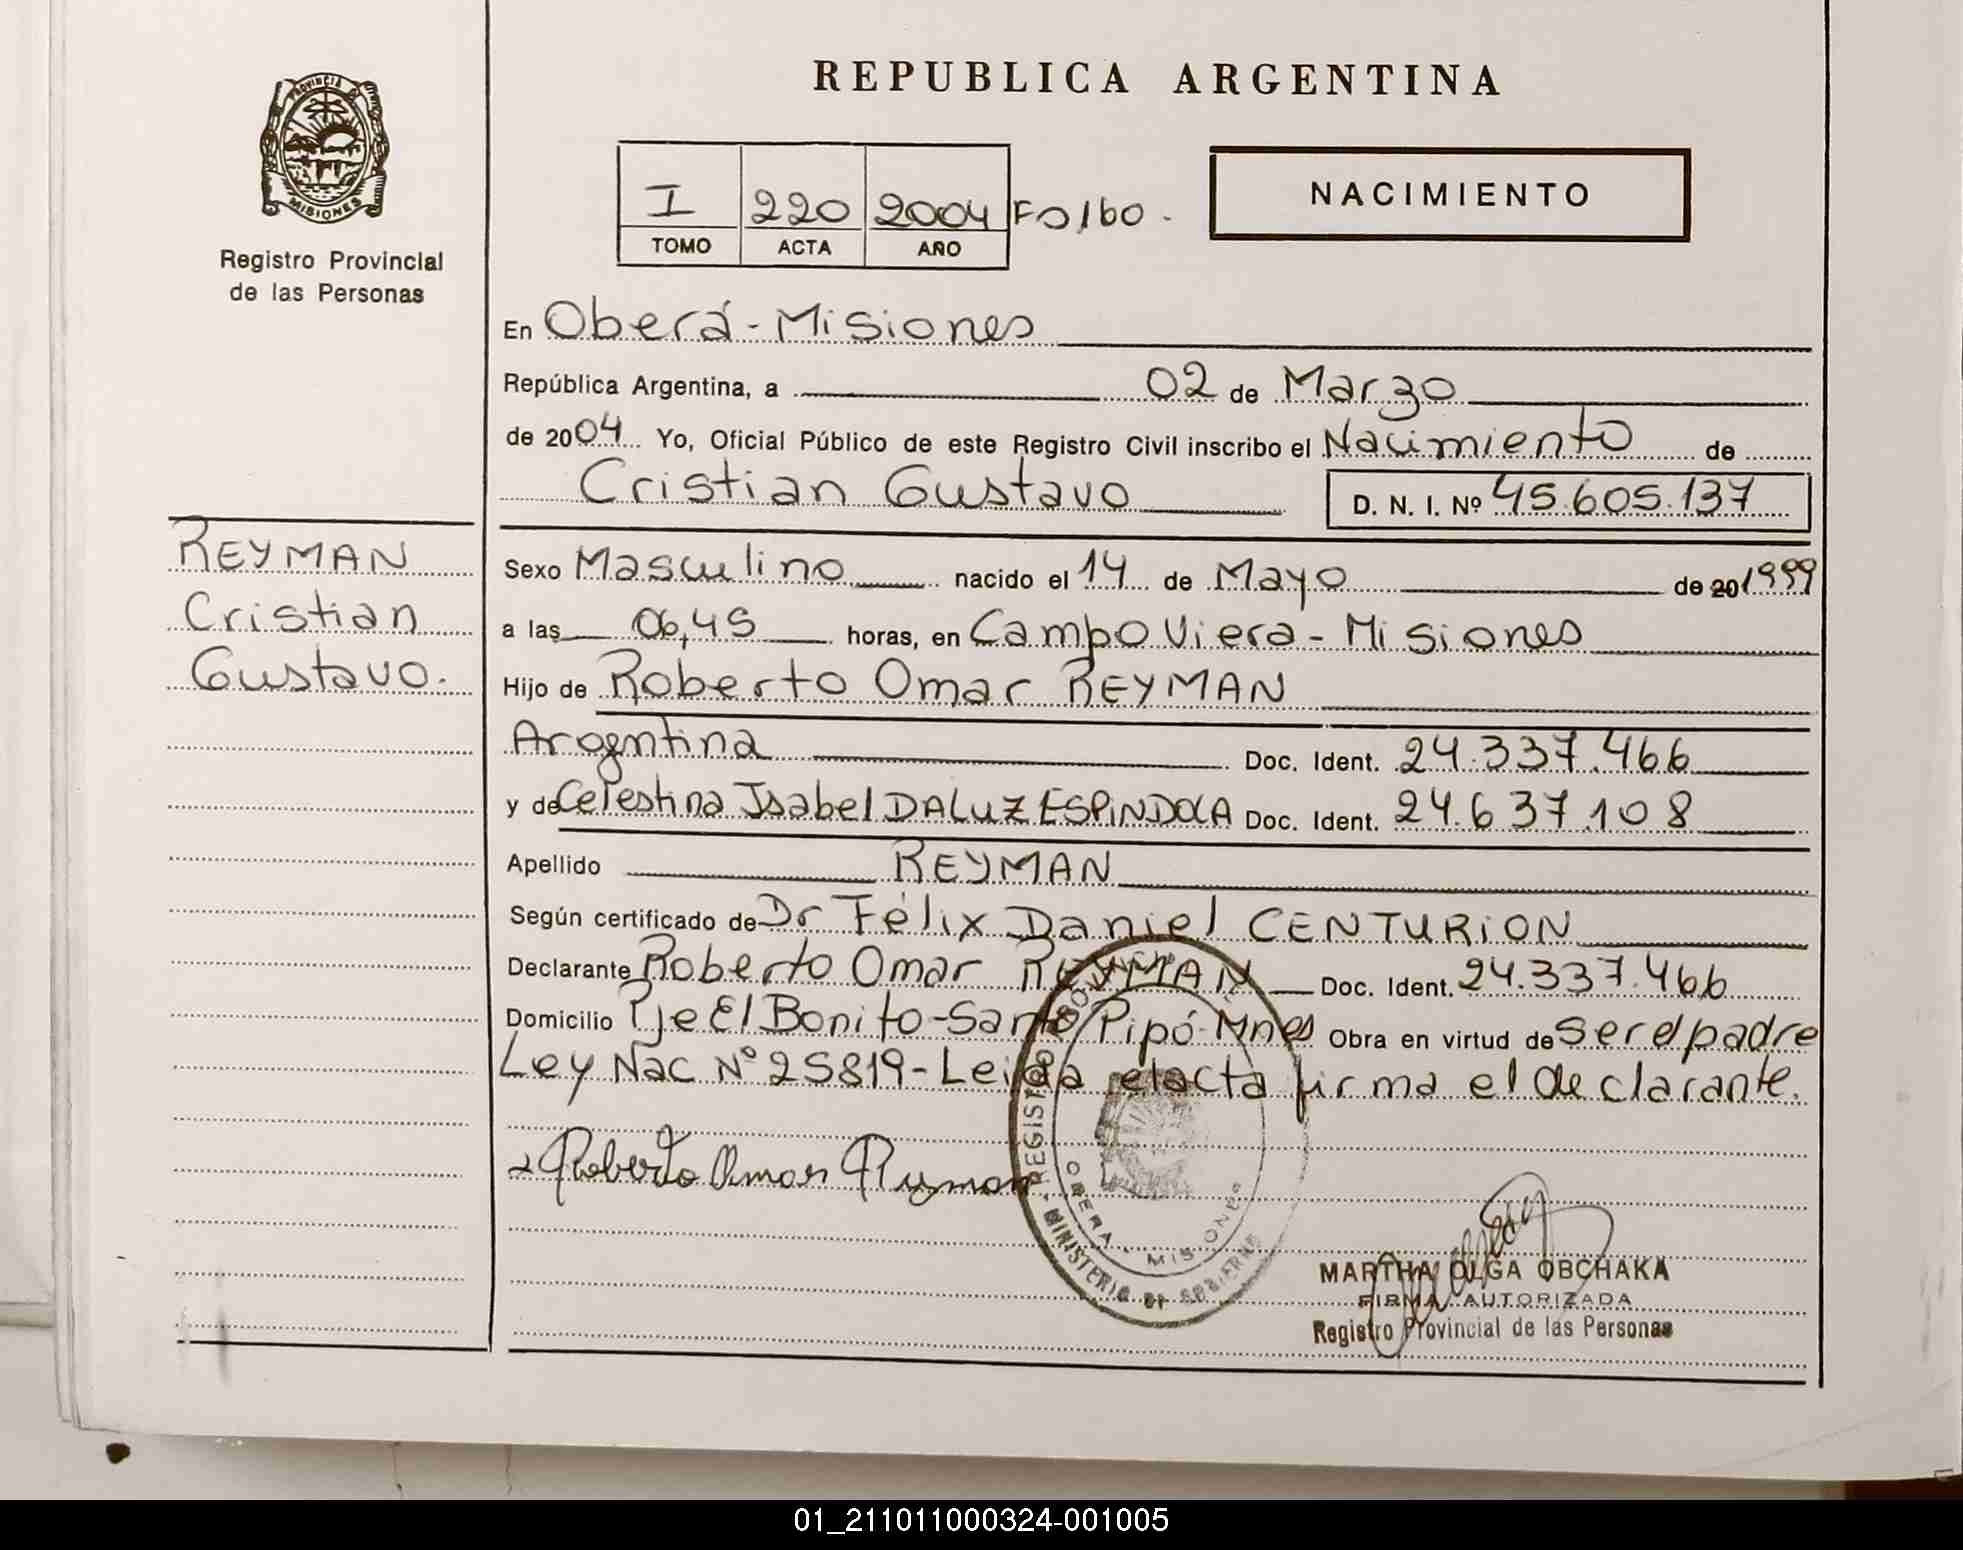 REPUBLICA ARGENTINA
PROVINCIA DE
MISIONES
Registro Provincial
de las Personas
I 220 2004 Fo160.
TOMO ACTA AÑO
NACIMIENTO
En Oberá-Misiones
República Argentina, a 02 de Marzo
de 2004 Yo, Oficial Público de este Registro Civil inscribo el Nacimiento de
Cristian Gustavo D. N. I. Nº 45.605.137
REYMAN
Cristian
Gustavo.
Sexo Masculino nacido el 14 de Mayo de 20 1999
a las 06,45 horas, en Campo Viera-Misiones
Hijo de Roberto Omar REYMAN
Argentina Doc. Ident. 24.337.466
y de Celestina Isabel DALUZ ESPINDOLA Doc. Ident. 24.637.108
Apellido REYMAN
Según certificado de Dr Félix Daniel CENTURION
Declarante Roberto Omar REYMAN Doc. Ident. 24.337.466
Domicilio Pje El Bonito-Santo Pipó-Mnes Obra en virtud de ser el padre
Ley Nac Nº 25819-Leida el acta firma el declarante.
Roberto Omar Reyman
REGISTRO PROVINCIAL
MINISTERIO DE GOBIERNO
OBERA - MISIONES
MARTHA OLGA OBCHAKA
FIRMA AUTORIZADA
Registro Provincial de las Personas
01_211011000324-001005